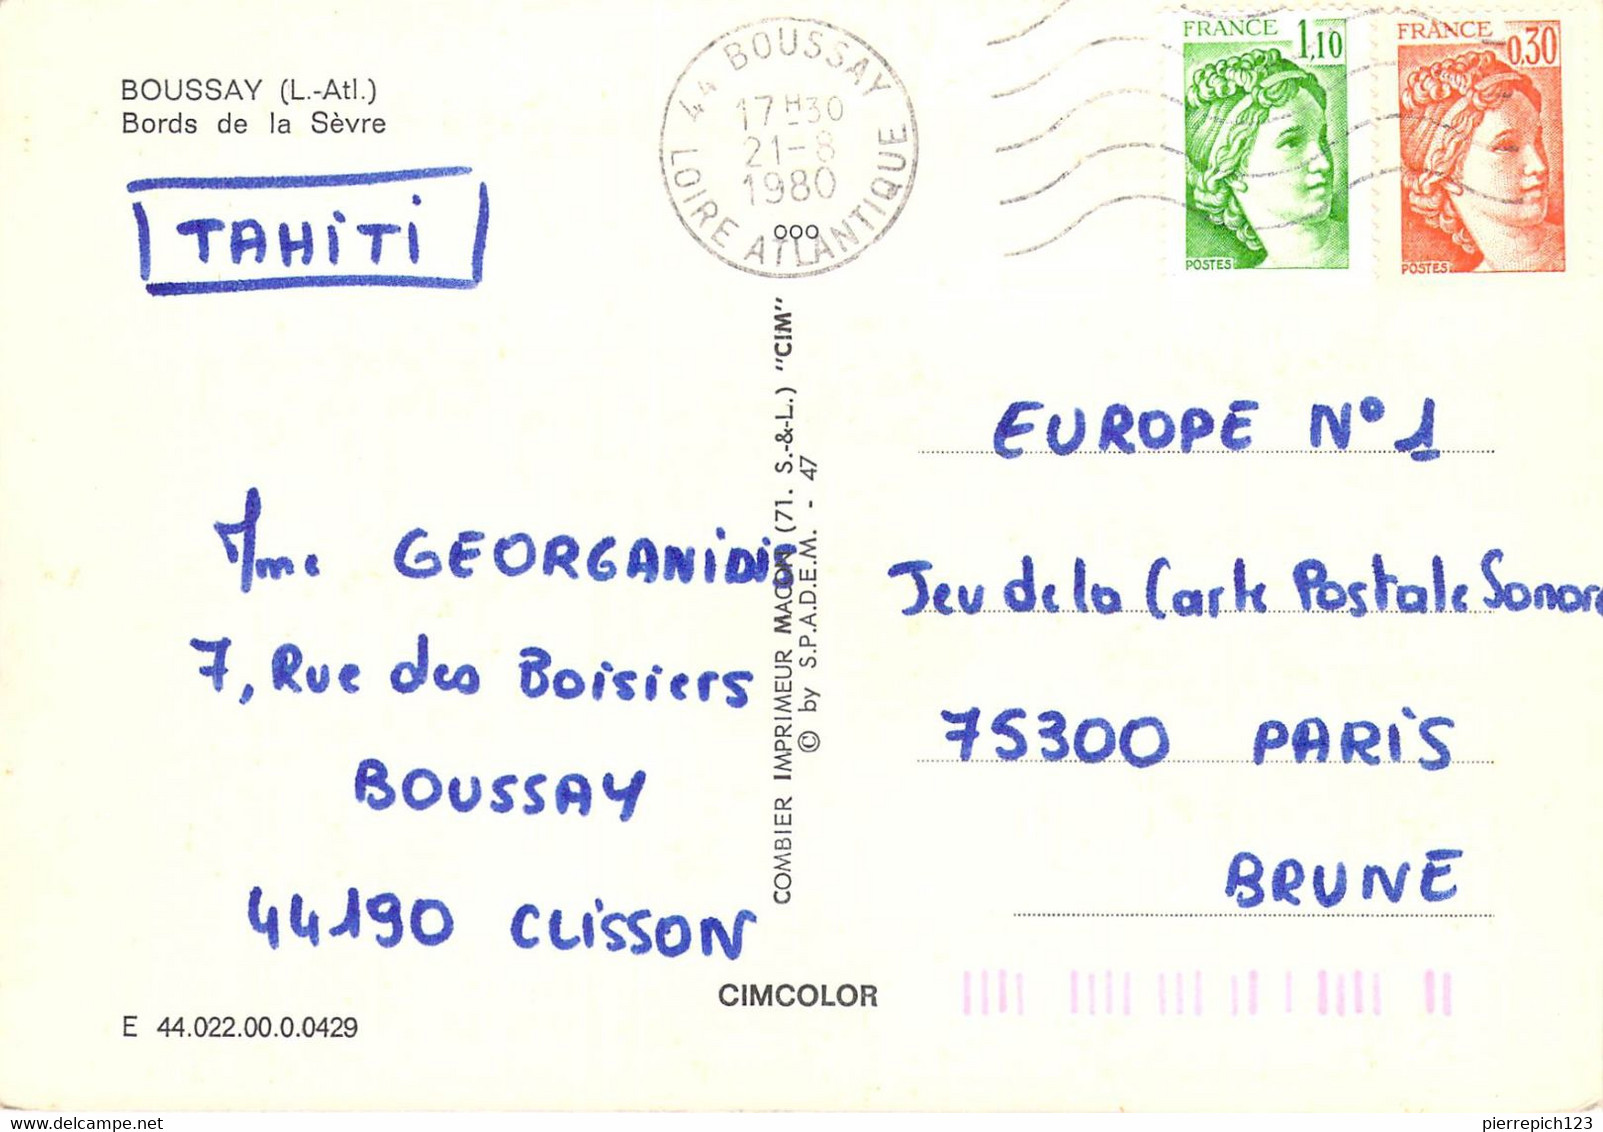 BOUSSAY (L.-Atl.)
Bords de la Sèvre
TAHiTi
44 BOUSSAY
17H30
21-8
1980
LOIRE ATLANTIQUE
ooo
FRANCE 1,10
POSTES
FRANCE 0,30
POSTES
COMBIER IMPRIMEUR MACON (71. S.-&-L.) "CIM"
© by S.P.A.D.E.M. - 47
Mme GEORGANiDiS
7, Rue des Boisiers
BOUSSAY
44190 CLiSSON
EUROPE N° 1
Jeu de la Carte Postale Sonore
75300 PARiS
BRUNE
CIMCOLOR
E 44.022.00.0.0429
pierrepich123